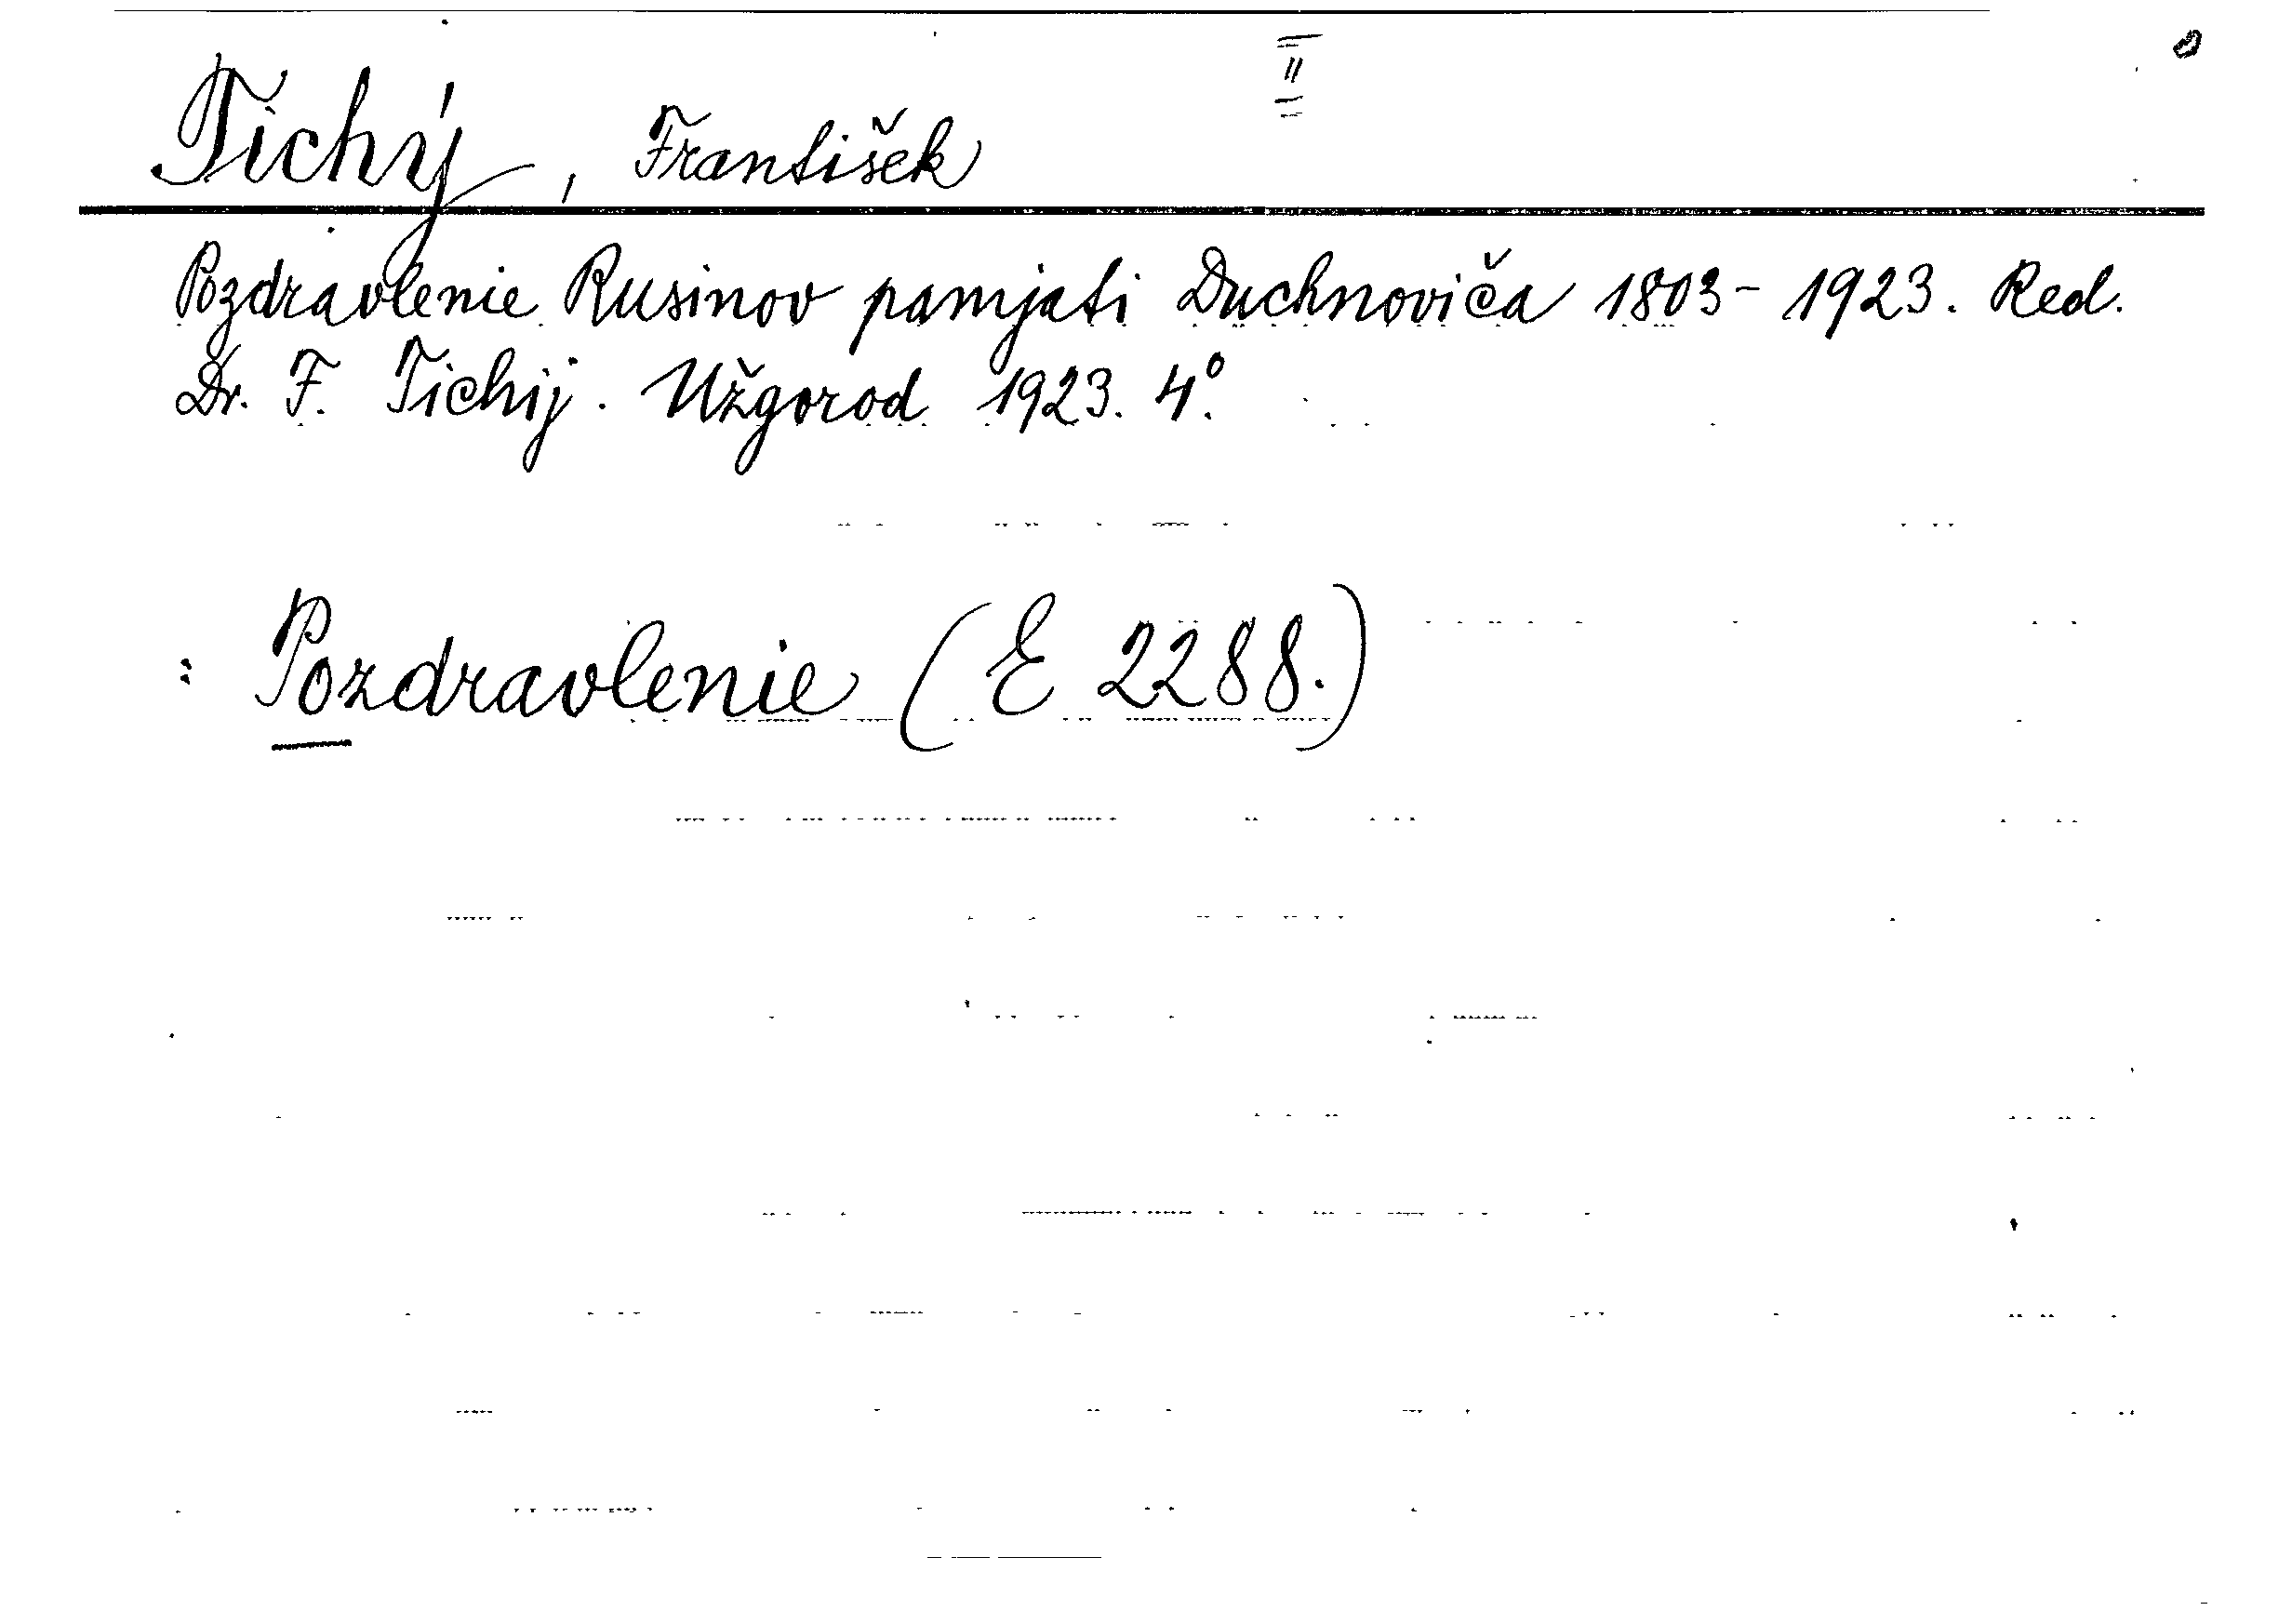 Tichý, František
Pozdravlenie Rusinov pamjati Duchnoviča 1803-1923. Red.
Dr. F. Tichij. Užgorod 1923. 4°.
: Pozdravlenie (E 2288.)